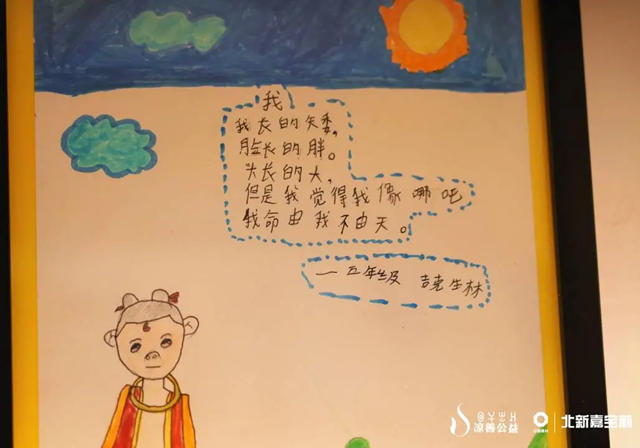 我
我长的矢委,
脸长的胖。
头长的大,
但是我觉得我像哪吒
我命由我不由天。
—五年级 吉克生林
凉善公益
北新嘉宝莉